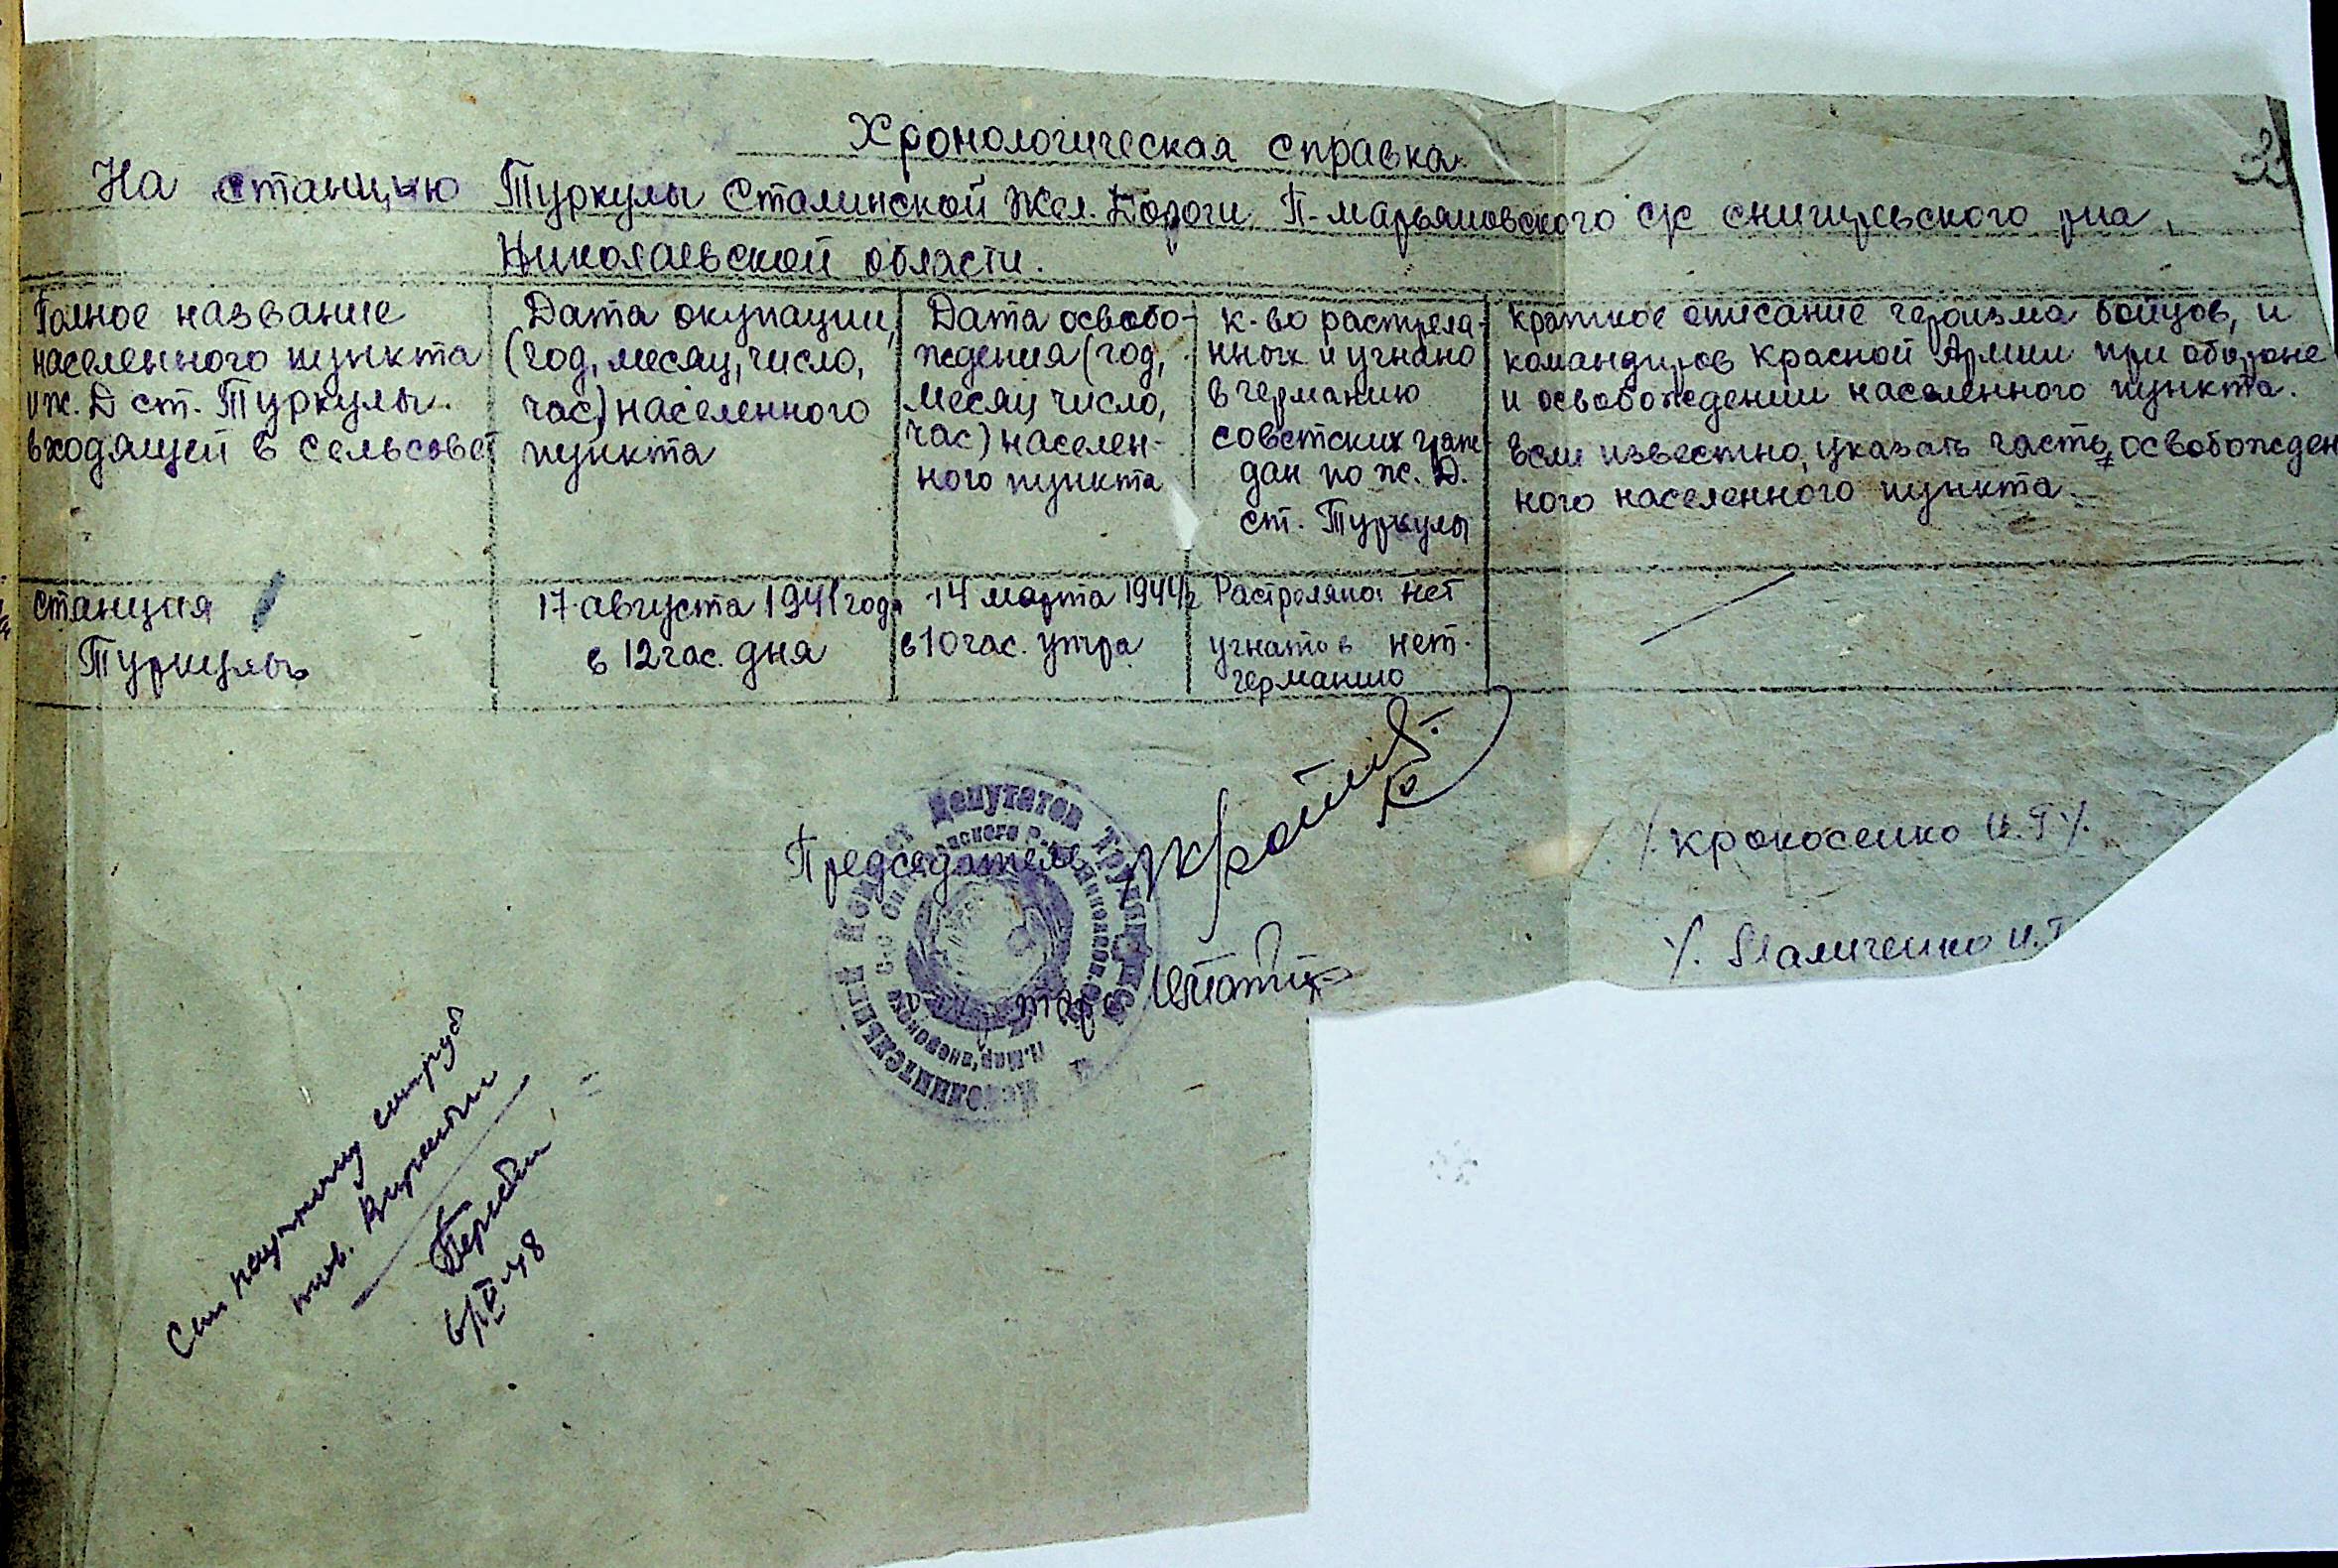 Хронологическая справка
На станцию Туркулы Сталинской Жел. Дороги П-марьяновского с/с снигирьского р-на,
Николаевской области.
Полное название
населенного пункта
и ж. Д ст. Туркулы.
входящей в сельсовет
Дата окупации,
(год, месяц, число,
час) населенного
пункта
Дата освобо-
ждения (год,
месяц число,
час) населен-
ного пункта
к-во растрела-
нных и угнано
в германию
советских граж-
дан по ж. Д.
ст. Туркулы
краткое описание героизма бойцов, и
командиров Красной Армии при обороне
и освобождении населенного пункта.
если известно, указать часть, освобожден
ного населенного пункта.
станция
Туркулы
17 августа 1941 года
в 12 час. дня
14 марта 1944г
в 10 час. утра
Растреляно: нет
угнато в нет.
германию
Председатель
/. Крокосенко И. Г /.
/. Паличенко И.
тов.
6/IV-48
Исполнительный Комитет Депутатов Трудящихся